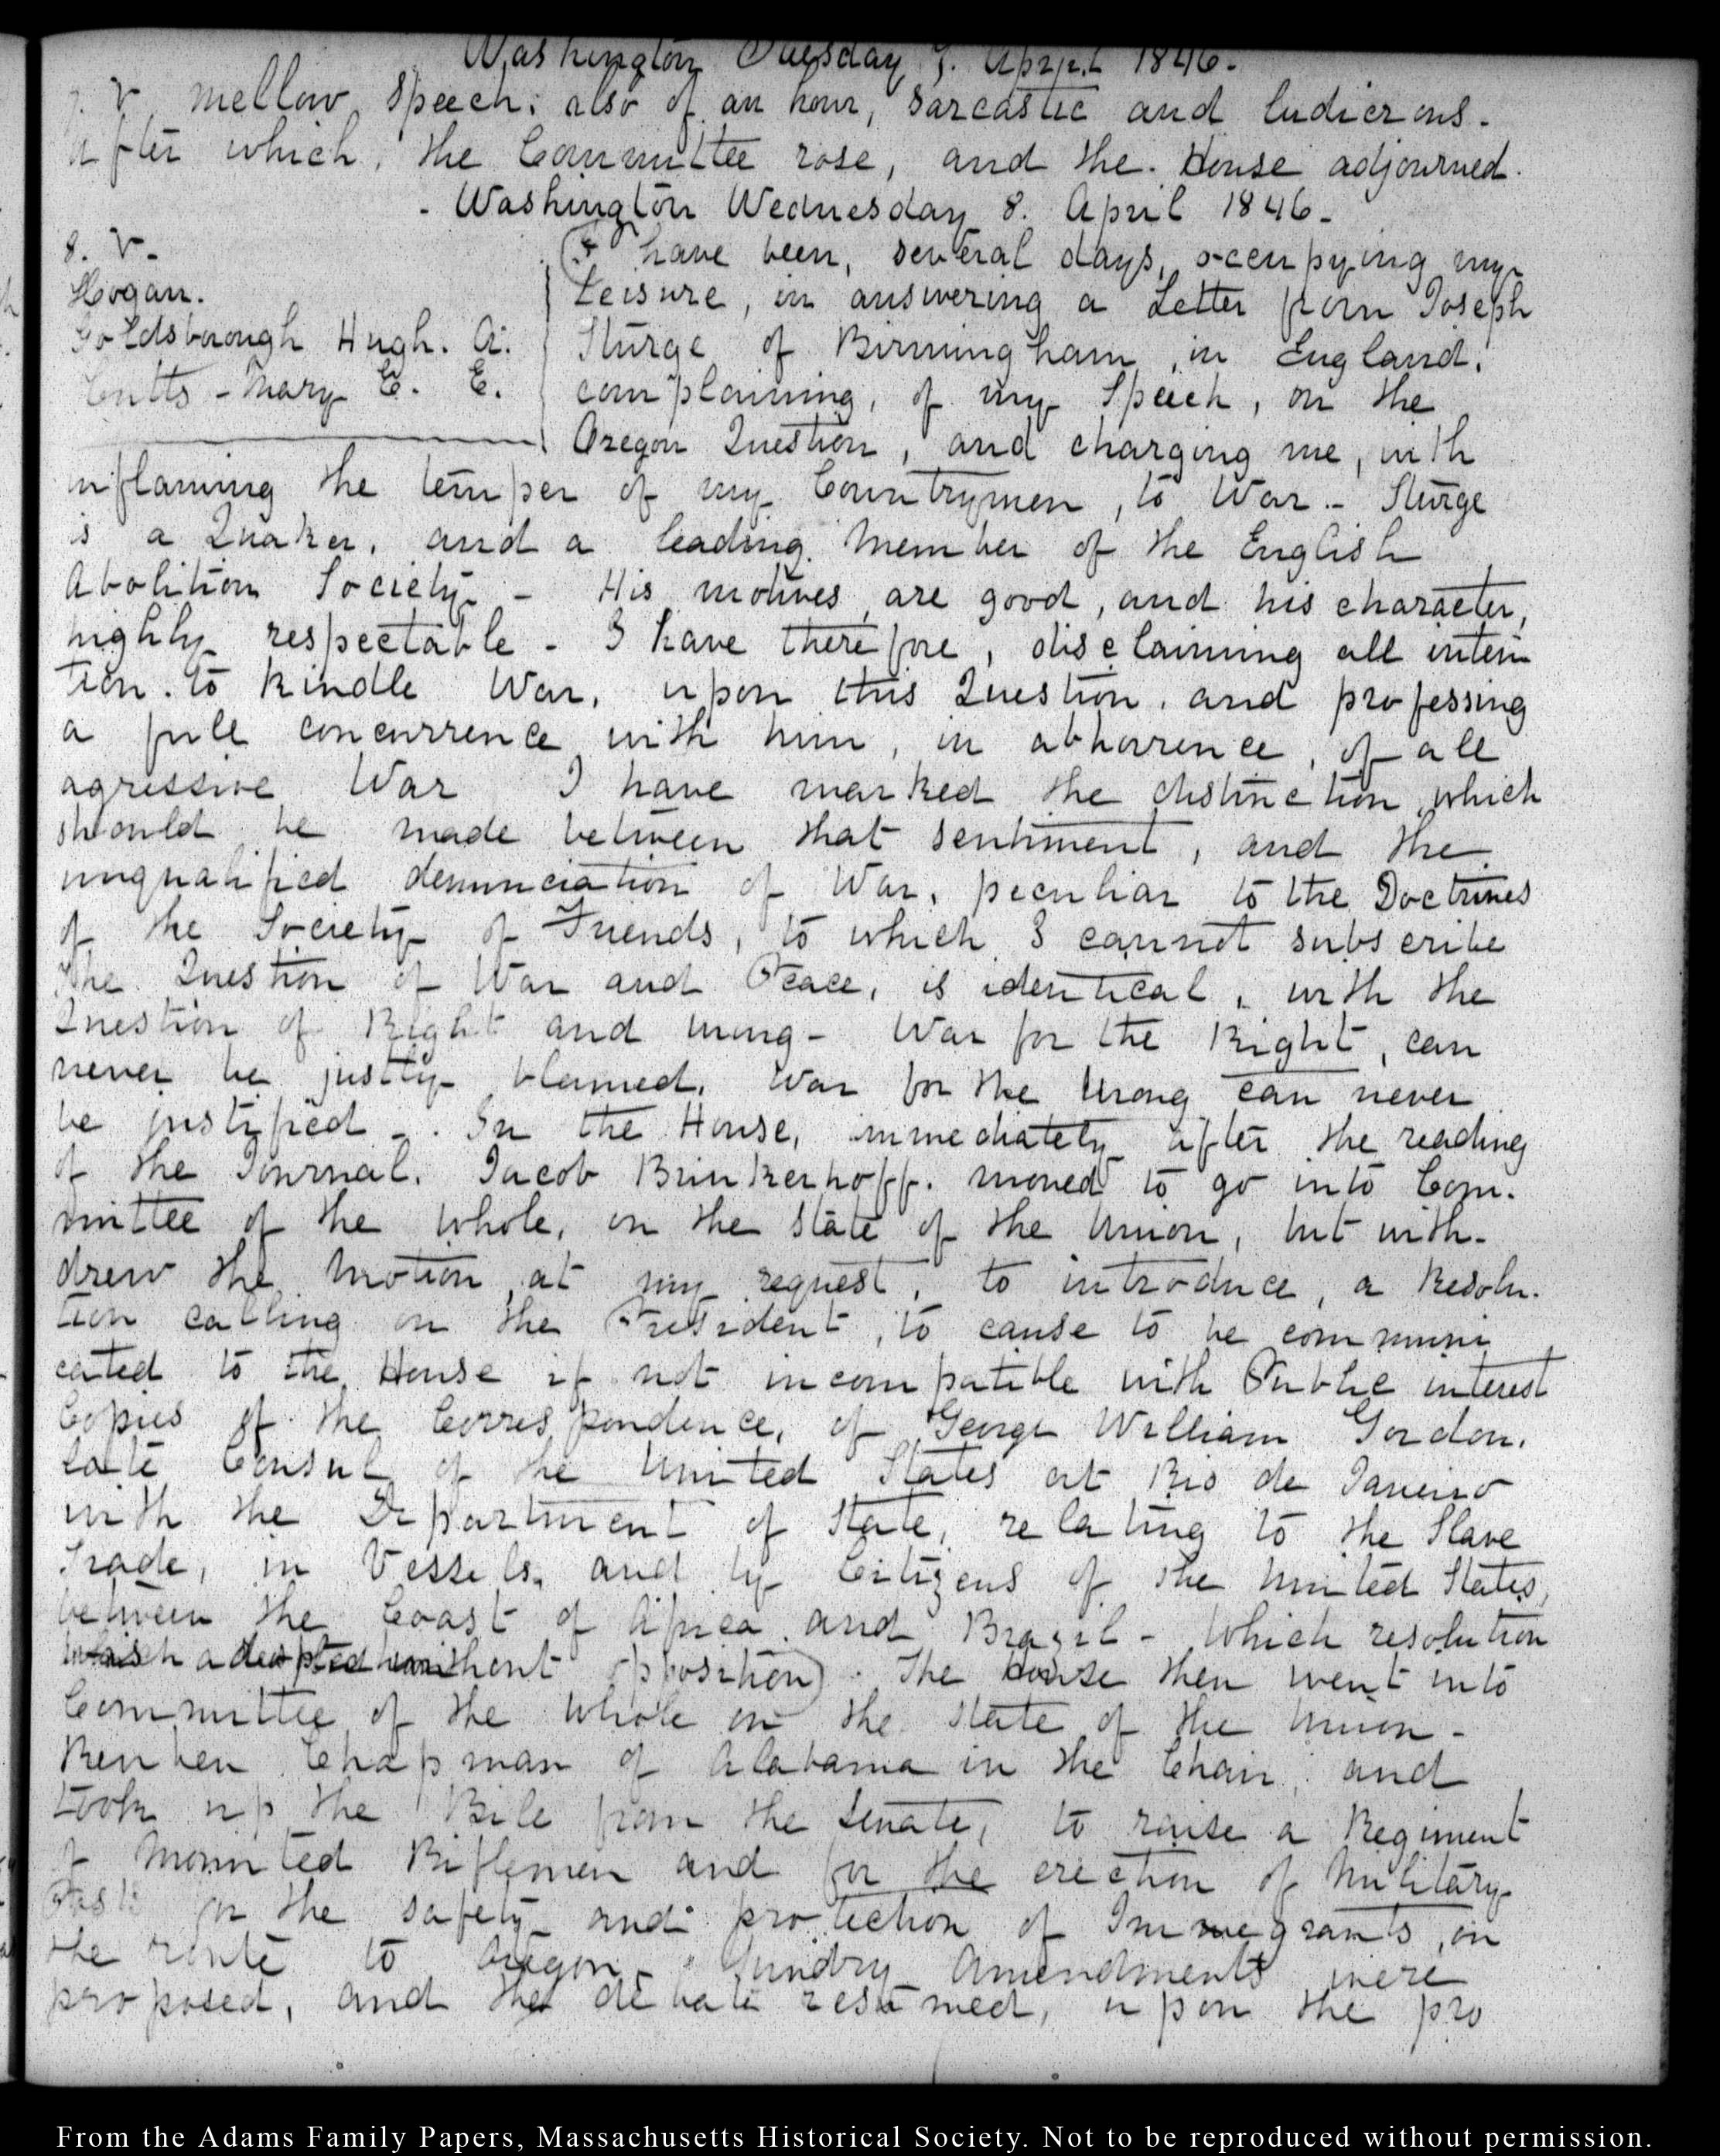 Washington Tuesday 7. April 1846.
7. V. mellow speech; also of an hour, sarcastic and ludicrous.
after which, the Committee rose, and the House adjourned.
- Washington Wednesday 8. April 1846-
8. V-
Hogan.
Goldsborough Hugh. A.
Cutts - Mary E. E.
(I have been, several days, occupying my
Leisure, in answering a Letter from Joseph
Sturge of Birmingham, in England,
complaining, of my Speech, on the
Oregon Question, and charging me, with
inflaming the temper of my Countrymen, to War - Sturge
is a Quaker, and a leading Member of the English
Abolition Society - His motives are good, and his character,
highly respectable - I have therefore, disclaiming all inten
tion to kindle War, upon this Question, and professing
a full concurrence with him, in abhorrence, of all
agressive War I have marked the distinction which
should be made between that sentiment, and the
unqualified denunciation of War, peculiar to the Doctrines
of the Society of Friends, to which I cannot subscribe
The Question of War and Peace, is identical, with the
Question of Right and wrong - War for the Right, can
never be justly blamed, War for the Wrong can never
be justified - In the House, immediately after the reading
of the Journal, Jacob Brinkerhoff. moved to go into Com-
mittee of the whole, on the state of the Union, but with-
drew the motion at my request, to introduce, a Resolu-
tion calling on the President, to cause to be communi
cated to the House if not incompatible with Public interest
Copies of the Correspondence, of George William Gordon,
late Consul of the United States at Rio de Janeiro
with the Department of State, relating to the Slave
Trade, in Vessels, and by Citizens of the United States,
between the Coast of Africa and Brazil - Which resolution
was adopted without opposition). The House then went into
Committee of the Whole on the State of the Union -
Reuben Chapman of Alabama in the Chair, and
took up the Bill from the Senate, to raise a Regiment
of Mounted Riflemen and for the erection of Military
Posts for the safety and protection of Immegrants, on
the route to Oregon - Sundry Amendments were
proposed, and the debate resumed, upon the pro
From the Adams Family Papers, Massachusetts Historical Society. Not to be reproduced without permission.